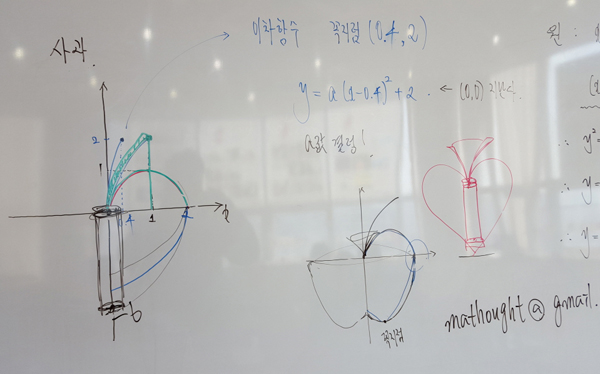 사과.
이차함수 꼭지점 (0.4, 2)
y = a(1-0.4)² + 2 . ← (0,0) 지난다.
a값 결정!
원 :
2
1
4
1
2
-6
꼭지점
∴ y²
∴ y =
∴ y =
mathought@gmail.